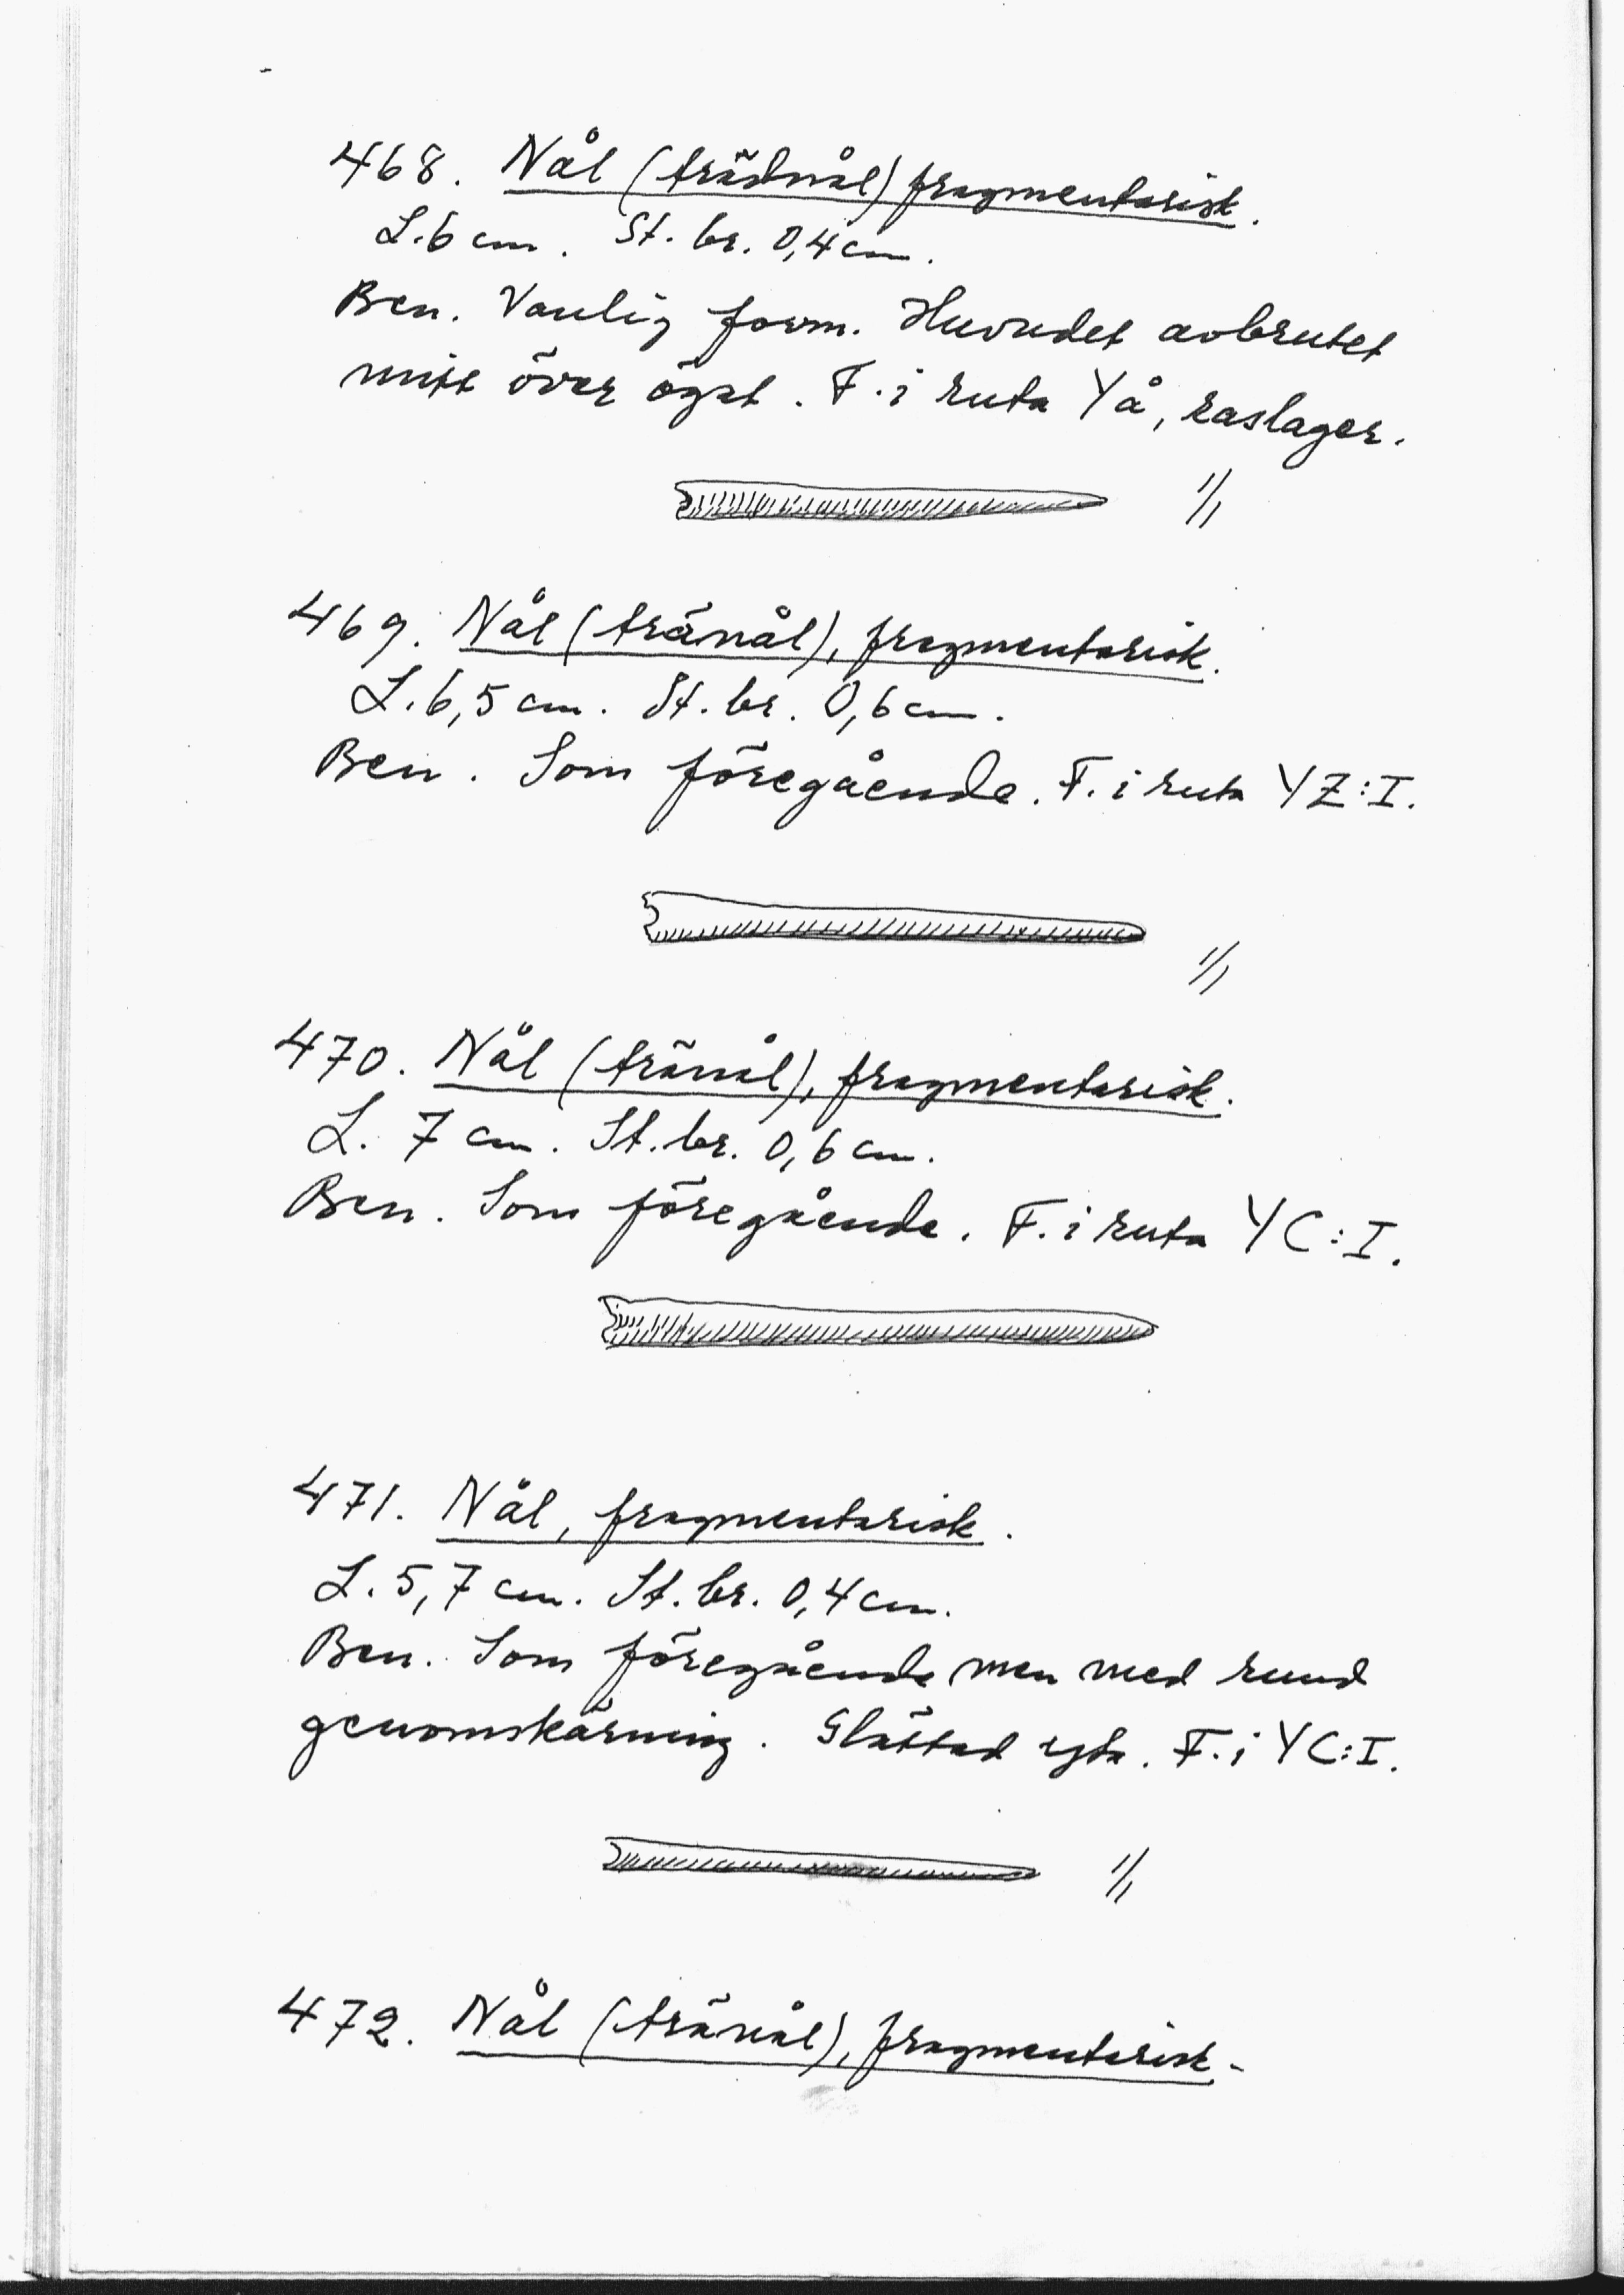 468. Nål (trädnål) fragmentarisk.
L. 6 cm. St. br. 0,4 cm.
Ben. Vanlig form. Huvudet avbrutet
mitt över ögat. F. i ruta YÅ, raslager.
1/1
469. Nål (tränål), fragmentarisk.
L. 6,5 cm. St. br. 0,6 cm.
Ben. Som föregående. F. i ruta YZ:I.
1/1
470. Nål (tränål), fragmentarisk.
L. 7 cm. St. br. 0,6 cm.
Ben. Som föregående. F. i ruta YC:I.
471. Nål, fragmentarisk.
L. 5,7 cm. St. br. 0,4 cm.
Ben. Som föregående men med rund
genomskärning. Glättad yta. F. i YC:I.
1/1
472. Nål (tränål), fragmentarisk.